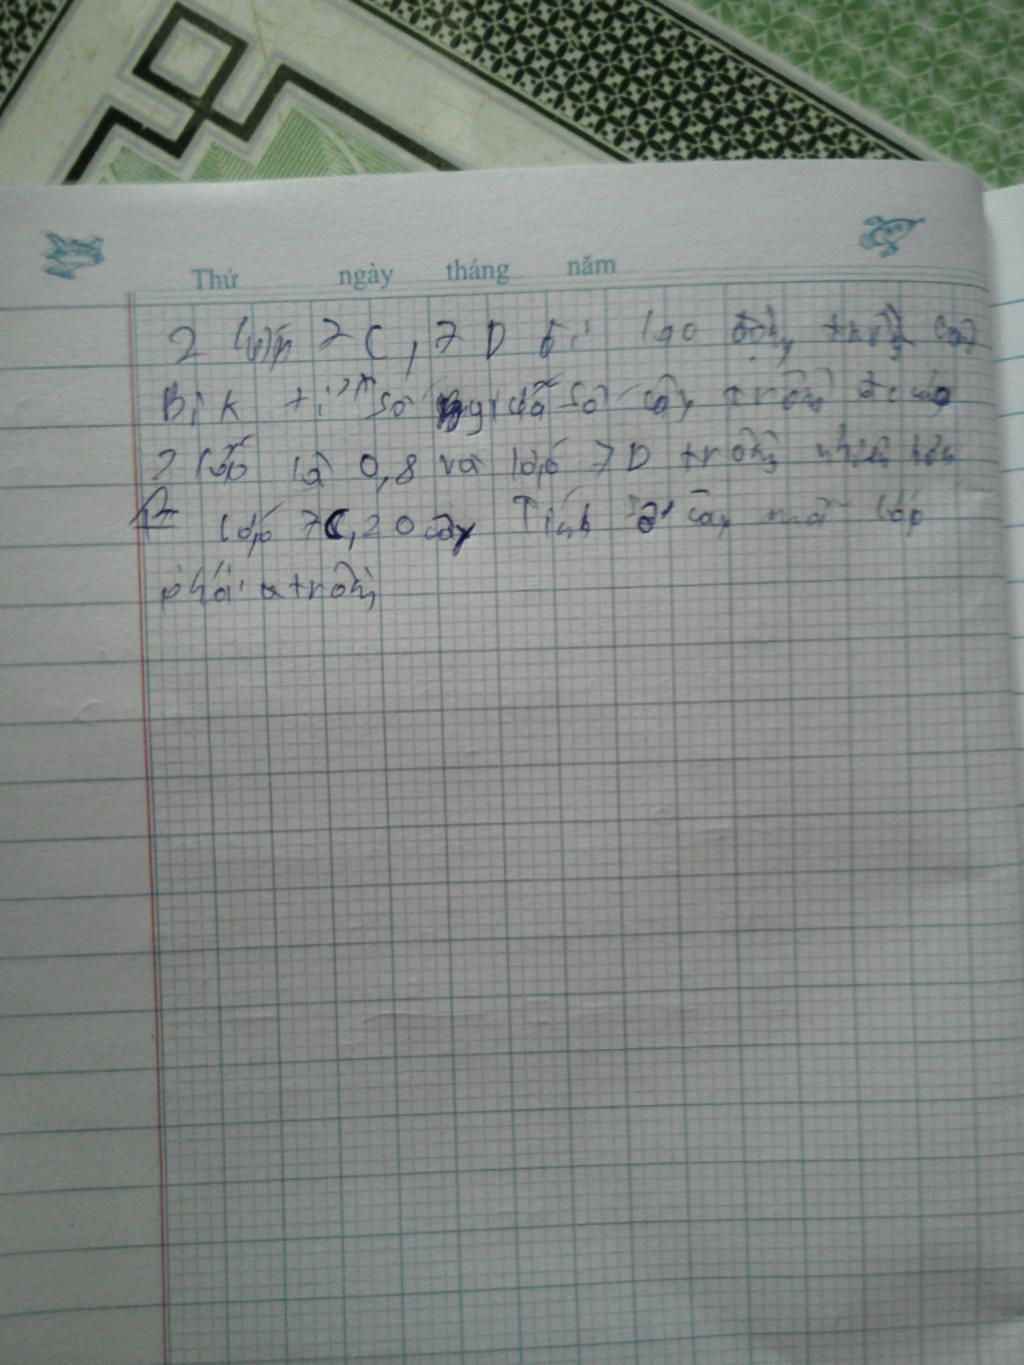 Thứ ngày tháng năm
2 lớp 7C, 7D đi lao động trồng cây
Bik tỉ số giữa số cây trồng đc của
2 lớp là 0,8 và lớp 7D trồng nhiều hơn
lớp 7C, 20 cây Tính số cây mỗi lớp
phải trồng